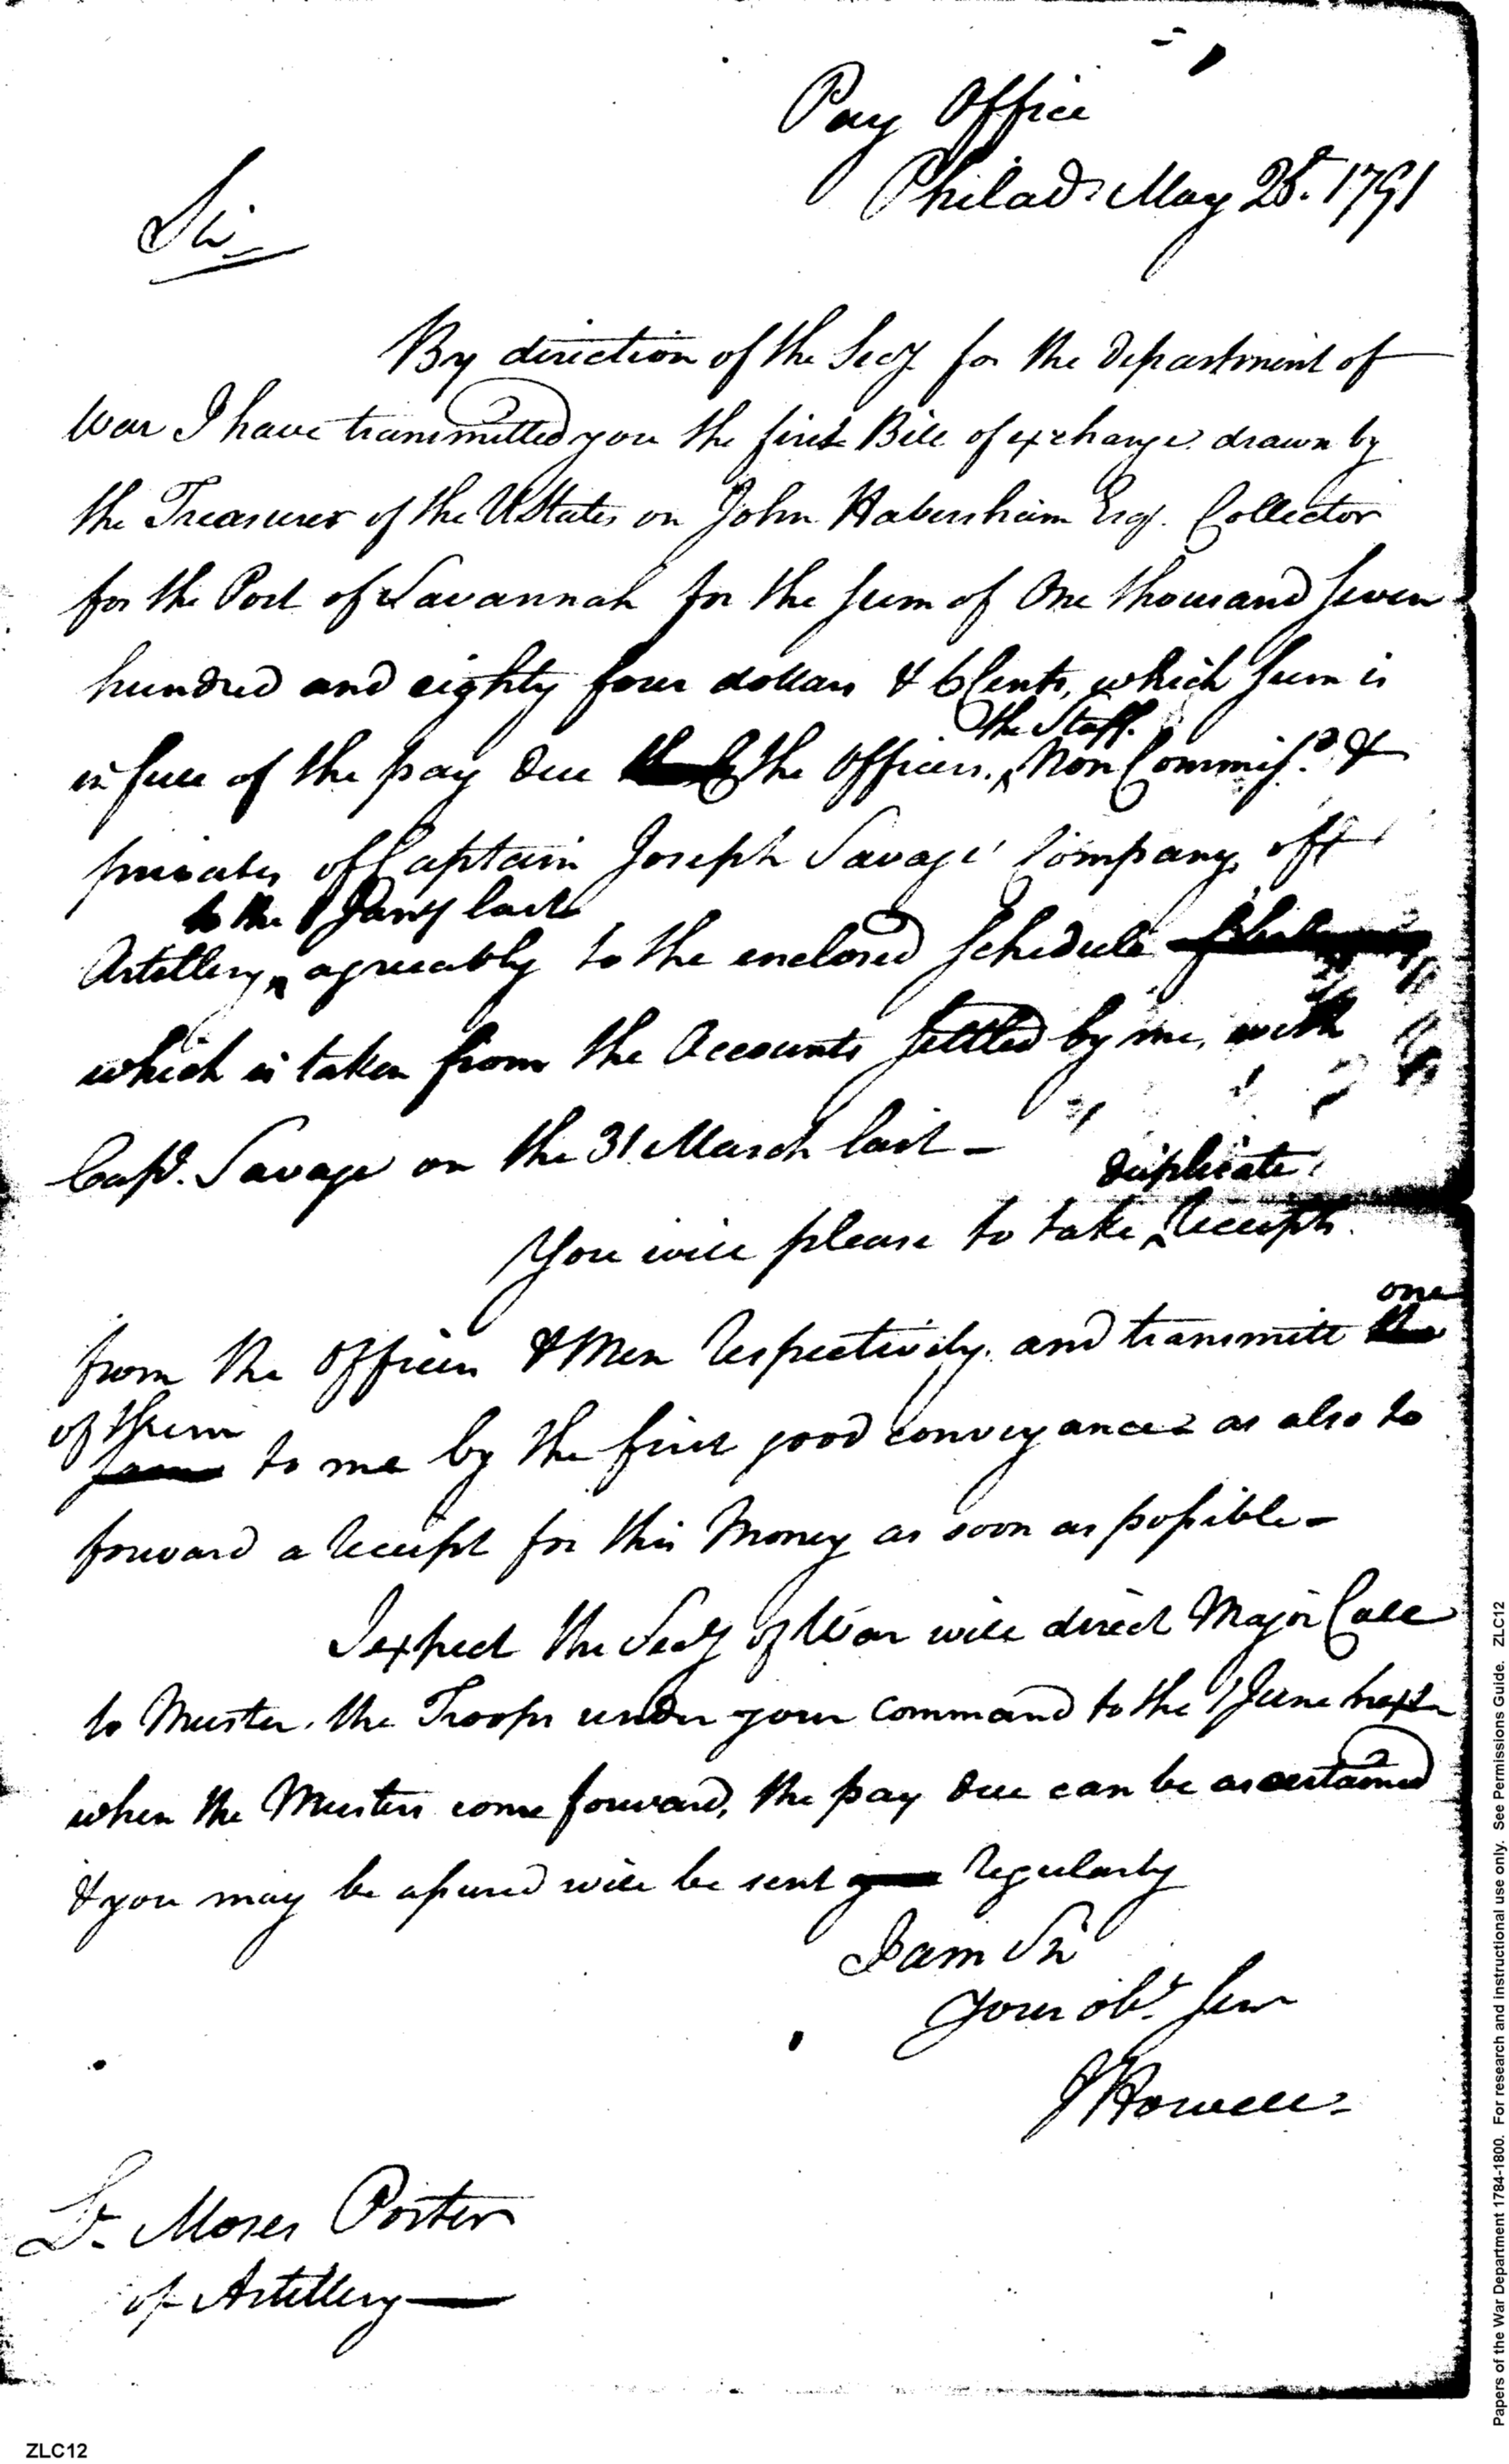 Pay Office
Philad.a May 28.t 1791
Sir
By direction of the Secy for the Department of
War I have transmitted you the first Bill of exchange drawn by
the Treasurer of the UStates on John Habersham Esq.r Collector
for the Port of Savannah for the Sum of One thousand Seven
hundred and eighty four dollars & 6 Cents, which Sum is
the Staff.
in full of the pay due the Officers, Non Commiss.d &
privates of Captain Joseph Savage' Company of
to the 1 Jany last
Artillery, agreeably to the enclosed Schedule
which is taken from the Accounts settled by me, with
Cap.t Savage on the 31 March last –
duplicate
You will please to take receipts
one
from the Officers & Men respectively. and transmitt
of them
to me by the first good conveyance as also to
forward a receipt for this Money as soon as possible –
I expect the Secy of War will direct Major Call
to Muster. the Troops under your command to the 1 June next
when the Musters come forward, the pay due can be ascertained
& you may be assured will be sent regularly
I am Sir
Your ob.t Serv
J Howell
L.t Moses Porter
of Artillery
ZLC12
Papers of the War Department 1784-1800. For research and instructional use only. See Permissions Guide. ZLC12